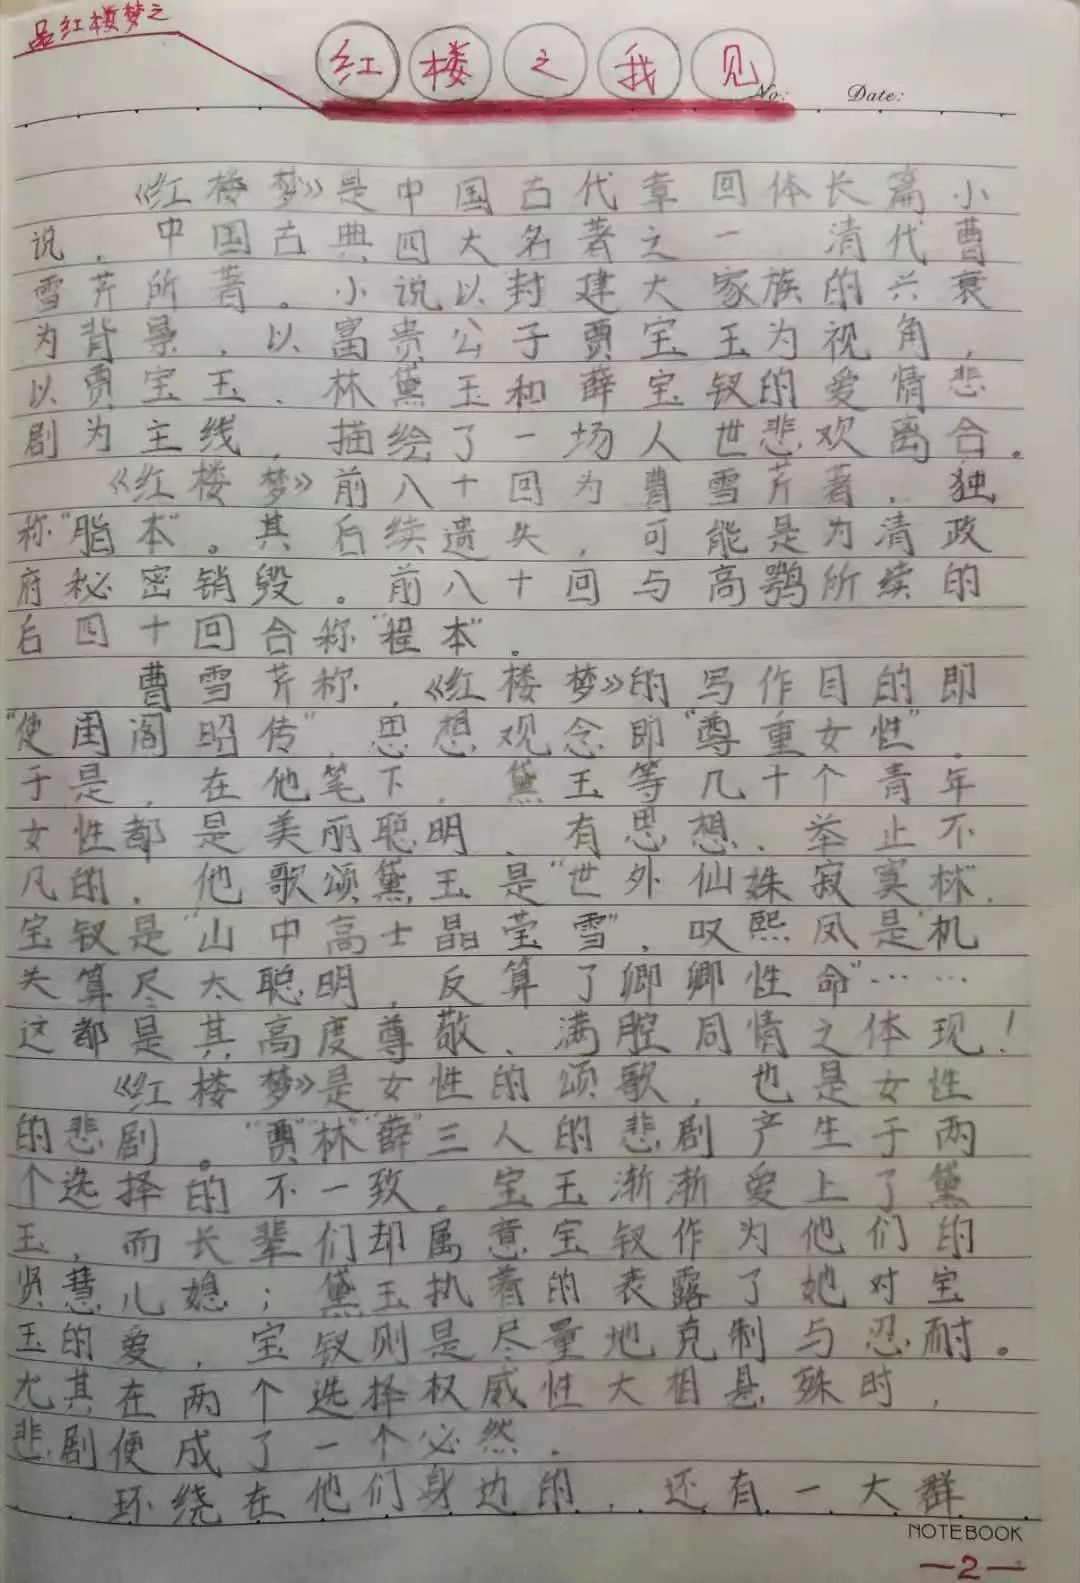 品红楼梦之
红楼之我见
No:
Date:
《红楼梦》是中国古代章回体长篇小
说，中国古典四大名著之一，清代曹
雪芹所著。小说以封建大家族的兴衰
为背景，以富贵公子贾宝玉为视角，
以贾宝玉、林黛玉和薛宝钗的爱情悲
剧为主线，描绘了一场人世悲欢离合。
《红楼梦》前八十回为曹雪芹著，独
称“脂本”。其后续遗失，可能是为清政
府秘密销毁。前八十回与高鹗所续的
后四十回合称“程本”。
曹雪芹称，《红楼梦》的写作目的即
“使闺阁昭传”，思想观念即“尊重女性”，
于是，在他笔下，黛玉等几十个青年
女性都是美丽聪明、有思想、举止不
凡的，他歌颂黛玉是“世外仙姝寂寞林”，
宝钗是“山中高士晶莹雪”，叹熙凤是“机
失算尽太聪明，反算了卿卿性命”……
这都是其高度尊敬、满腔同情之体现！
《红楼梦》是女性的颂歌，也是女性
的悲剧。“贾”“林”“薛”三人的悲剧产生于两
个选择的不一致。宝玉渐渐爱上了黛
玉，而长辈们却属意宝钗作为他们的
贤慧儿媳；黛玉执着的表露了她对宝
玉的爱，宝钗则是尽量地克制与忍耐。
尤其在两个选择权威性大相悬殊时，
悲剧便成了一个必然。
环绕在他们身边的，还有一大群
NOTEBOOK
—2—